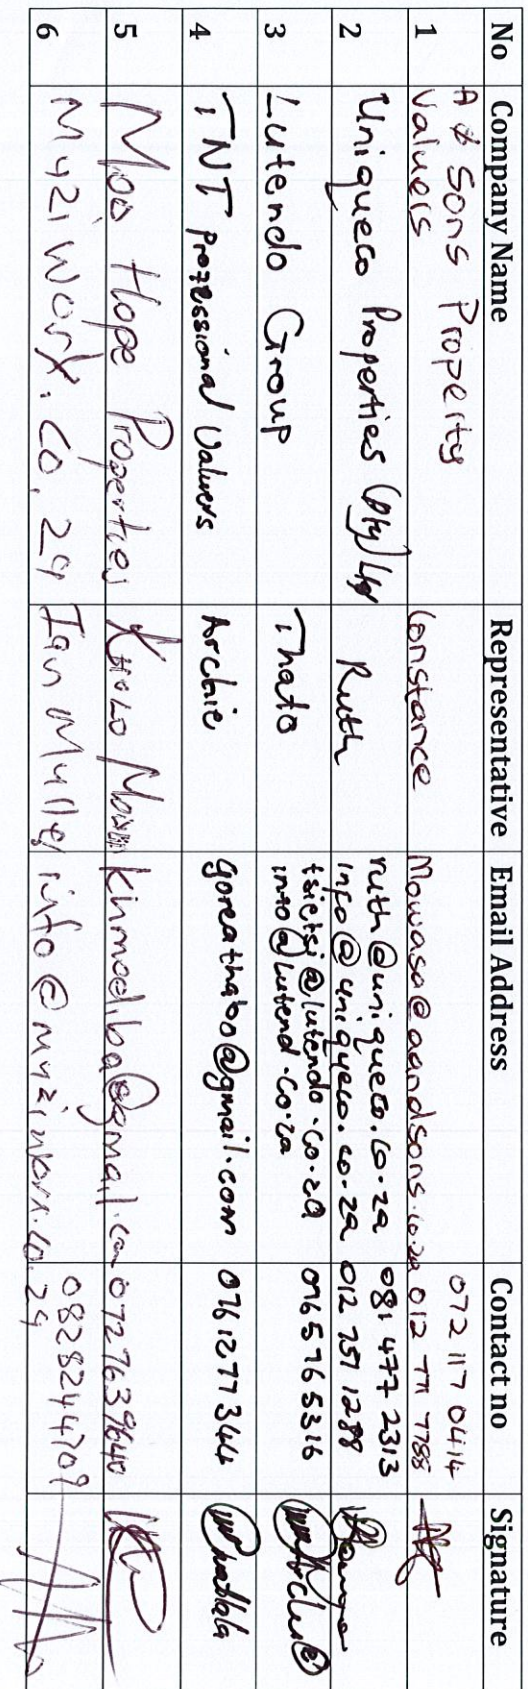 No Company Name Representative Email Address Contact no Signature
1 A & Sons Property Valuers Constance Mowaso@aandsons.co.za 072 117 0414
012 771 7788
2 Uniqueco Properties (Pty) Ltd Ruth ruth@uniqueco.co.za 081 477 2313
info@uniqueco.co.za 012 751 1288
3 Lutendo Group Thato tsietsi@lutendo.co.za 0765765316
info@lutend.co.za
4 TNT Professional Valuers Archie goreathabo@gmail.com 0761277344
5 Moo Hope Properties khmodiba@gmail.com 0727639640
6 Myziwork.co.za Ian Muller info@myziwork.co.za 0828244709